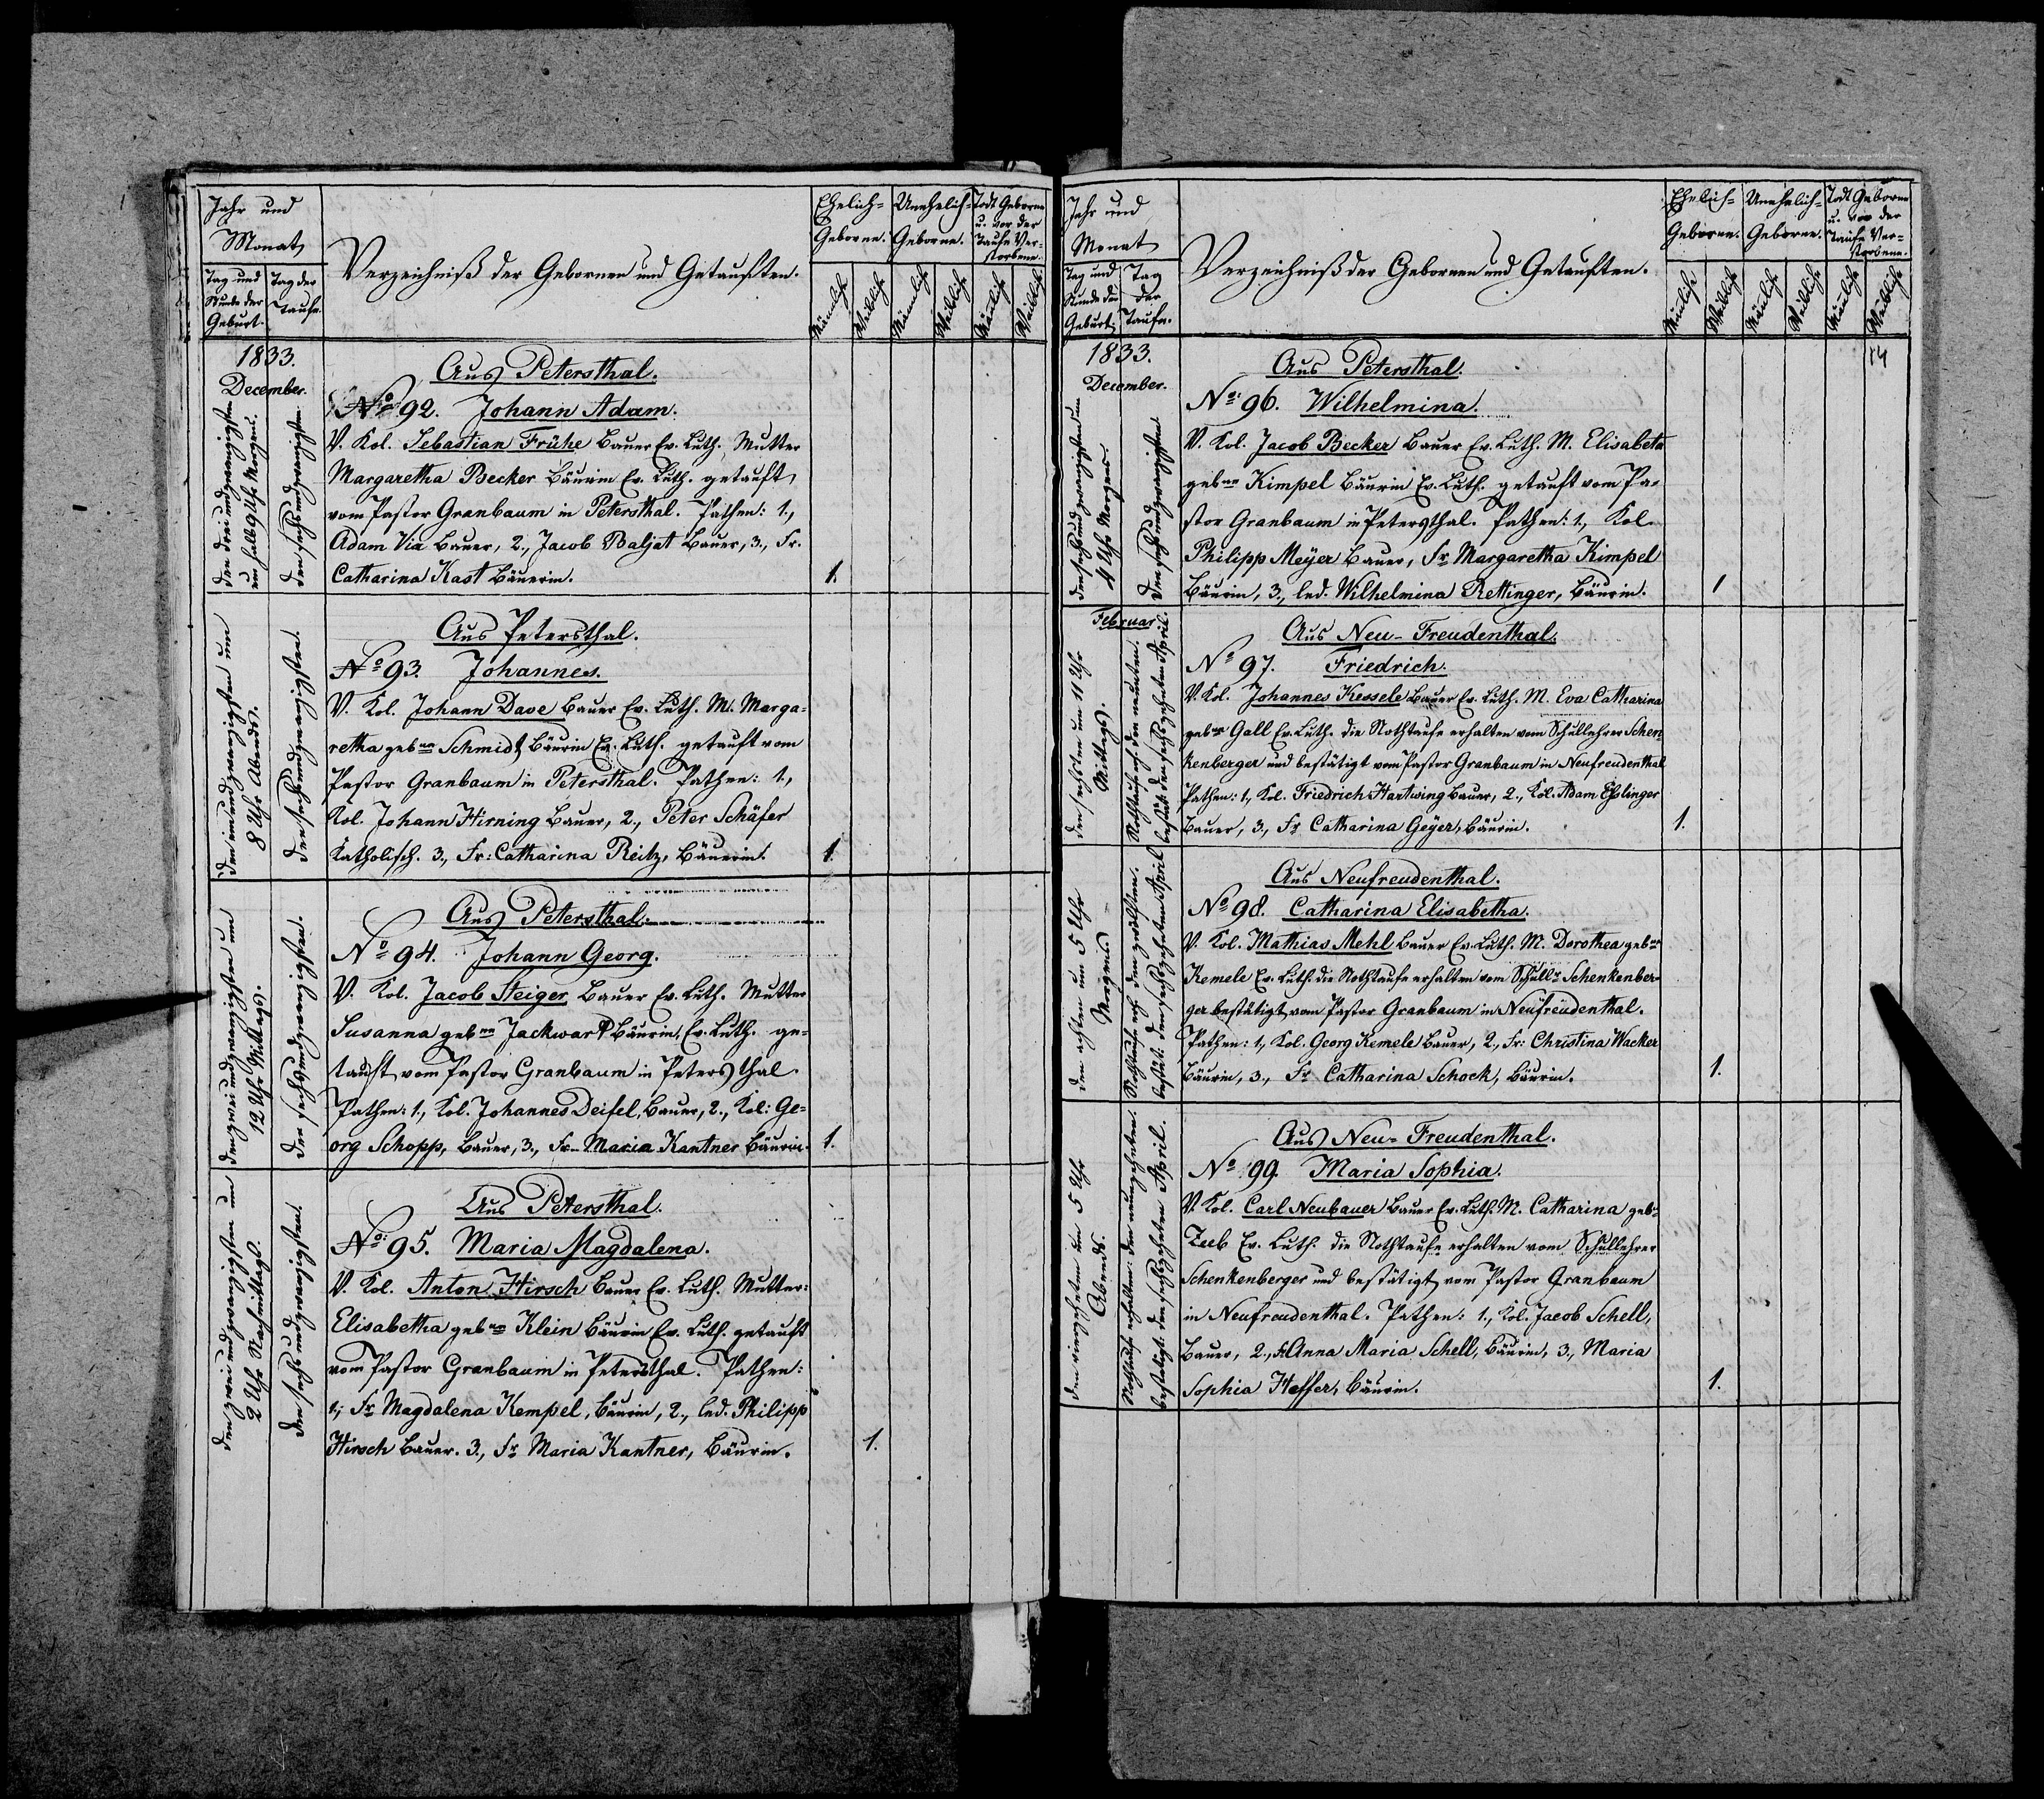 Jahr und
Monat
Tag und
Stunde der
Geburt.
Tag der
Taufe.
Verzeichniß der Gebornen und Getauften.
Ehelich-
Geborne.
Unehelich-
Geborne.
Todt Geborne
u. vor der
Taufe Ver-
storbene.
Mänliche
Weibliche
Mänliche
Weibliche
Mänliche
Weibliche
1833.
December.
den drei und zwanzigsten
um halb 9 Uhr Morgens.
den sechs und zwanzigsten.
Aus Petersthal.
No 92. Johann Adam.
V. Kol. Sebastian Frühe Bauer Ev. Luth. Mutter
Margaretha Becker Bäurin Ev. Luth. getauft
vom Pastor Granbaum in Petersthal. Pathen: 1.,
Adam Via Bauer, 2., Jacob Baljet Bauer, 3., Fr.
Catharina Kast Bäuerin.
1.
den ein und zwanzigsten um
8 Uhr Abends.
den sechs und zwanzigsten.
Aus Petersthal.
No 93. Johannes.
V. Kol. Johann Dave Bauer Ev. Luth. M. Marga-
retha gebne Schmidt Bäurin Ev. Luth. getauft vom
Pastor Granbaum in Petersthal. Pathen: 1.,
Kol. Johann Hirning Bauer, 2., Peter Schäfer
Katholisch. 3., Fr: Catharina Reitz, Bäuerin.
1.
den zwei und zwanzigsten um
12 Uhr Mittags.
den sechs und zwanzigsten.
Aus Petersthal.
No 94. Johann Georg.
V. Kol. Jacob Steiger Bauer Ev. Luth. Mutter
Susanna gebne Jackwart Bäurin, Ev. Luth. ge-
tauft vom Pastor Granbaum in Petersthal.
Pathen: 1., Kol. Johannes Deifel, Bauer, 2., Kol: Ge-
org Schopp, Bauer, 3., Fr. Maria Kantner Bäurin.
1.
den zwei und zwanzigsten um
2 Uhr Nachmittags.
den sechs und zwanzigsten.
Aus Petersthal.
No 95. Maria Magdalena.
V. Kol. Anton Hirsch Bauer Ev. Luth. Mutter:
Elisabetha gebne Klein Bäurin Ev. Luth. getauft
vom Pastor Granbaum in Petersthal. Pathen:
1., Fr Magdalena Kempel, Bäurin, 2., led. Philipp
Hirsch Bauer. 3., Fr Maria Kantner, Bäurin.
1.
Jahr und
Monat
Tag und
Stunde der
Geburt.
Tag
der
Taufe.
Verzeichniß der Gebornen und Getauften.
Ehelich-
Geborne.
Unehelich-
Geborne.
Todt Geborne
u. vor der
Taufe Ver-
storbene.
Mänliche
Weibliche
Mänliche
Weibliche
Mänliche
Weibliche
1833.
December.
den sechs und zwanzigsten um
4 Uhr Morgens.
den sechs und zwanzigsten
Aus Petersthal.
No 96. Wilhelmina.
V. Kol. Jacob Becker Bauer Ev. Luth. M. Elisabeta
gebne Kimpel Bäurin Ev. Luth. getauft vom Pa-
stor Granbaum in Petersthal. Pathen: 1., Kol.
Philipp Meÿer Bauer, Fr Margaretha Kimpel
Bäurin, 3., led. Wilhelmina Rettinger, Bäurin.
1
Februar
den sechsten um 11 Uhr
Mittags.
Nothtaufe erh. den neunten.
bestät. den sechszehnten April.
Aus Neu-Freudenthal.
No 97. Friedrich.
V. Kol. Johannes Kessele Bauer Ev. Luth. M. Eva Catharina
gebne Gall Ev. Luth. die Nothtaufe erhalten vom Schullehrer Schen
kenberger und bestätigt vom Pastor Granbaum in Neufreudenthal
Pathen: 1., Kol. Friedrich Hartwing Bauer, 2., Kol. Adam Eßlinger
Bauer, 3., Fr Catharina Geÿer, Bäurin.
1.
den achten um 5 Uhr
Morgens.
Nothtaufe erh. den zwölften.
bestät. den sechszehnten April
Aus Neufreudenthal.
No 98. Catharina Elisabetha.
V. Kol. Mathias Mehl Bauer Ev. Luth. M. Dorothea gebne
Kemele Ev. Luth. die Nothtaufe erhalten vom Schullr Schenkenber-
ger bestätigt vom Pastor Granbaum in Neufreudenthal.
Pathen: 1., Kol. Georg Kemele Bauer, 2., Fr: Christina Wacker
Bäurin, 3., Fr Catharina Schock, Bäurin.
1.
den vierzehnten um 5 Uhr
Abends.
Nothtaufe erhalten: den neunzehnten
bestätigt: den sechszehnten April.
Aus Neu-Freudenthal.
No 99. Maria Sophia.
V. Kol. Carl Neubauer Bauer Ev. Luth. M. Catharina gebn
Zeeb Ev. Luth. die Nothtaufe erhalten vom Schullehrer
Schenkenberger und bestätigt vom Pastor Granbaum
in Neufreudenthal. Pathen: 1., Kol. Jacob Schell,
Bauer, 2., Fr Anna Maria Schell, Bäurin, 3., Maria
Sophia Heffer, Bäurin.
1.